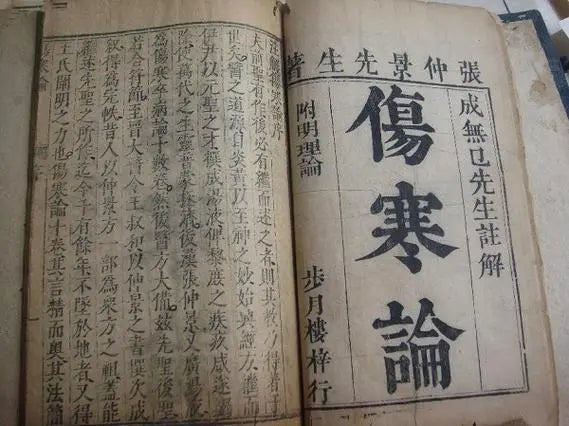 張仲景先生著
成無已先生註解
傷寒論
附明理論
步月樓梓行
注解傷寒論序
夫前聖有作後必有繼而述之者則其教乃得著于
世矣醫之道源自炎黃以至神之妙始興經方繼而
伊尹以元聖之才撰成湯液俾黎庶之疾疢咸遂蠲
除使萬代之生靈普蒙拯救後漢張仲景又廣湯液
為傷寒卒病論十數卷然後醫方大備茲先聖後聖
若合符節至晉大醫令王叔和以仲景之書撰次成
叙得為完帙昔人以仲景方一部為眾方之祖蓋能
繼述先聖之所作迄今千有餘年不墜於地者又得
王氏闡明之力也傷寒論十卷其言精而奧其法簡